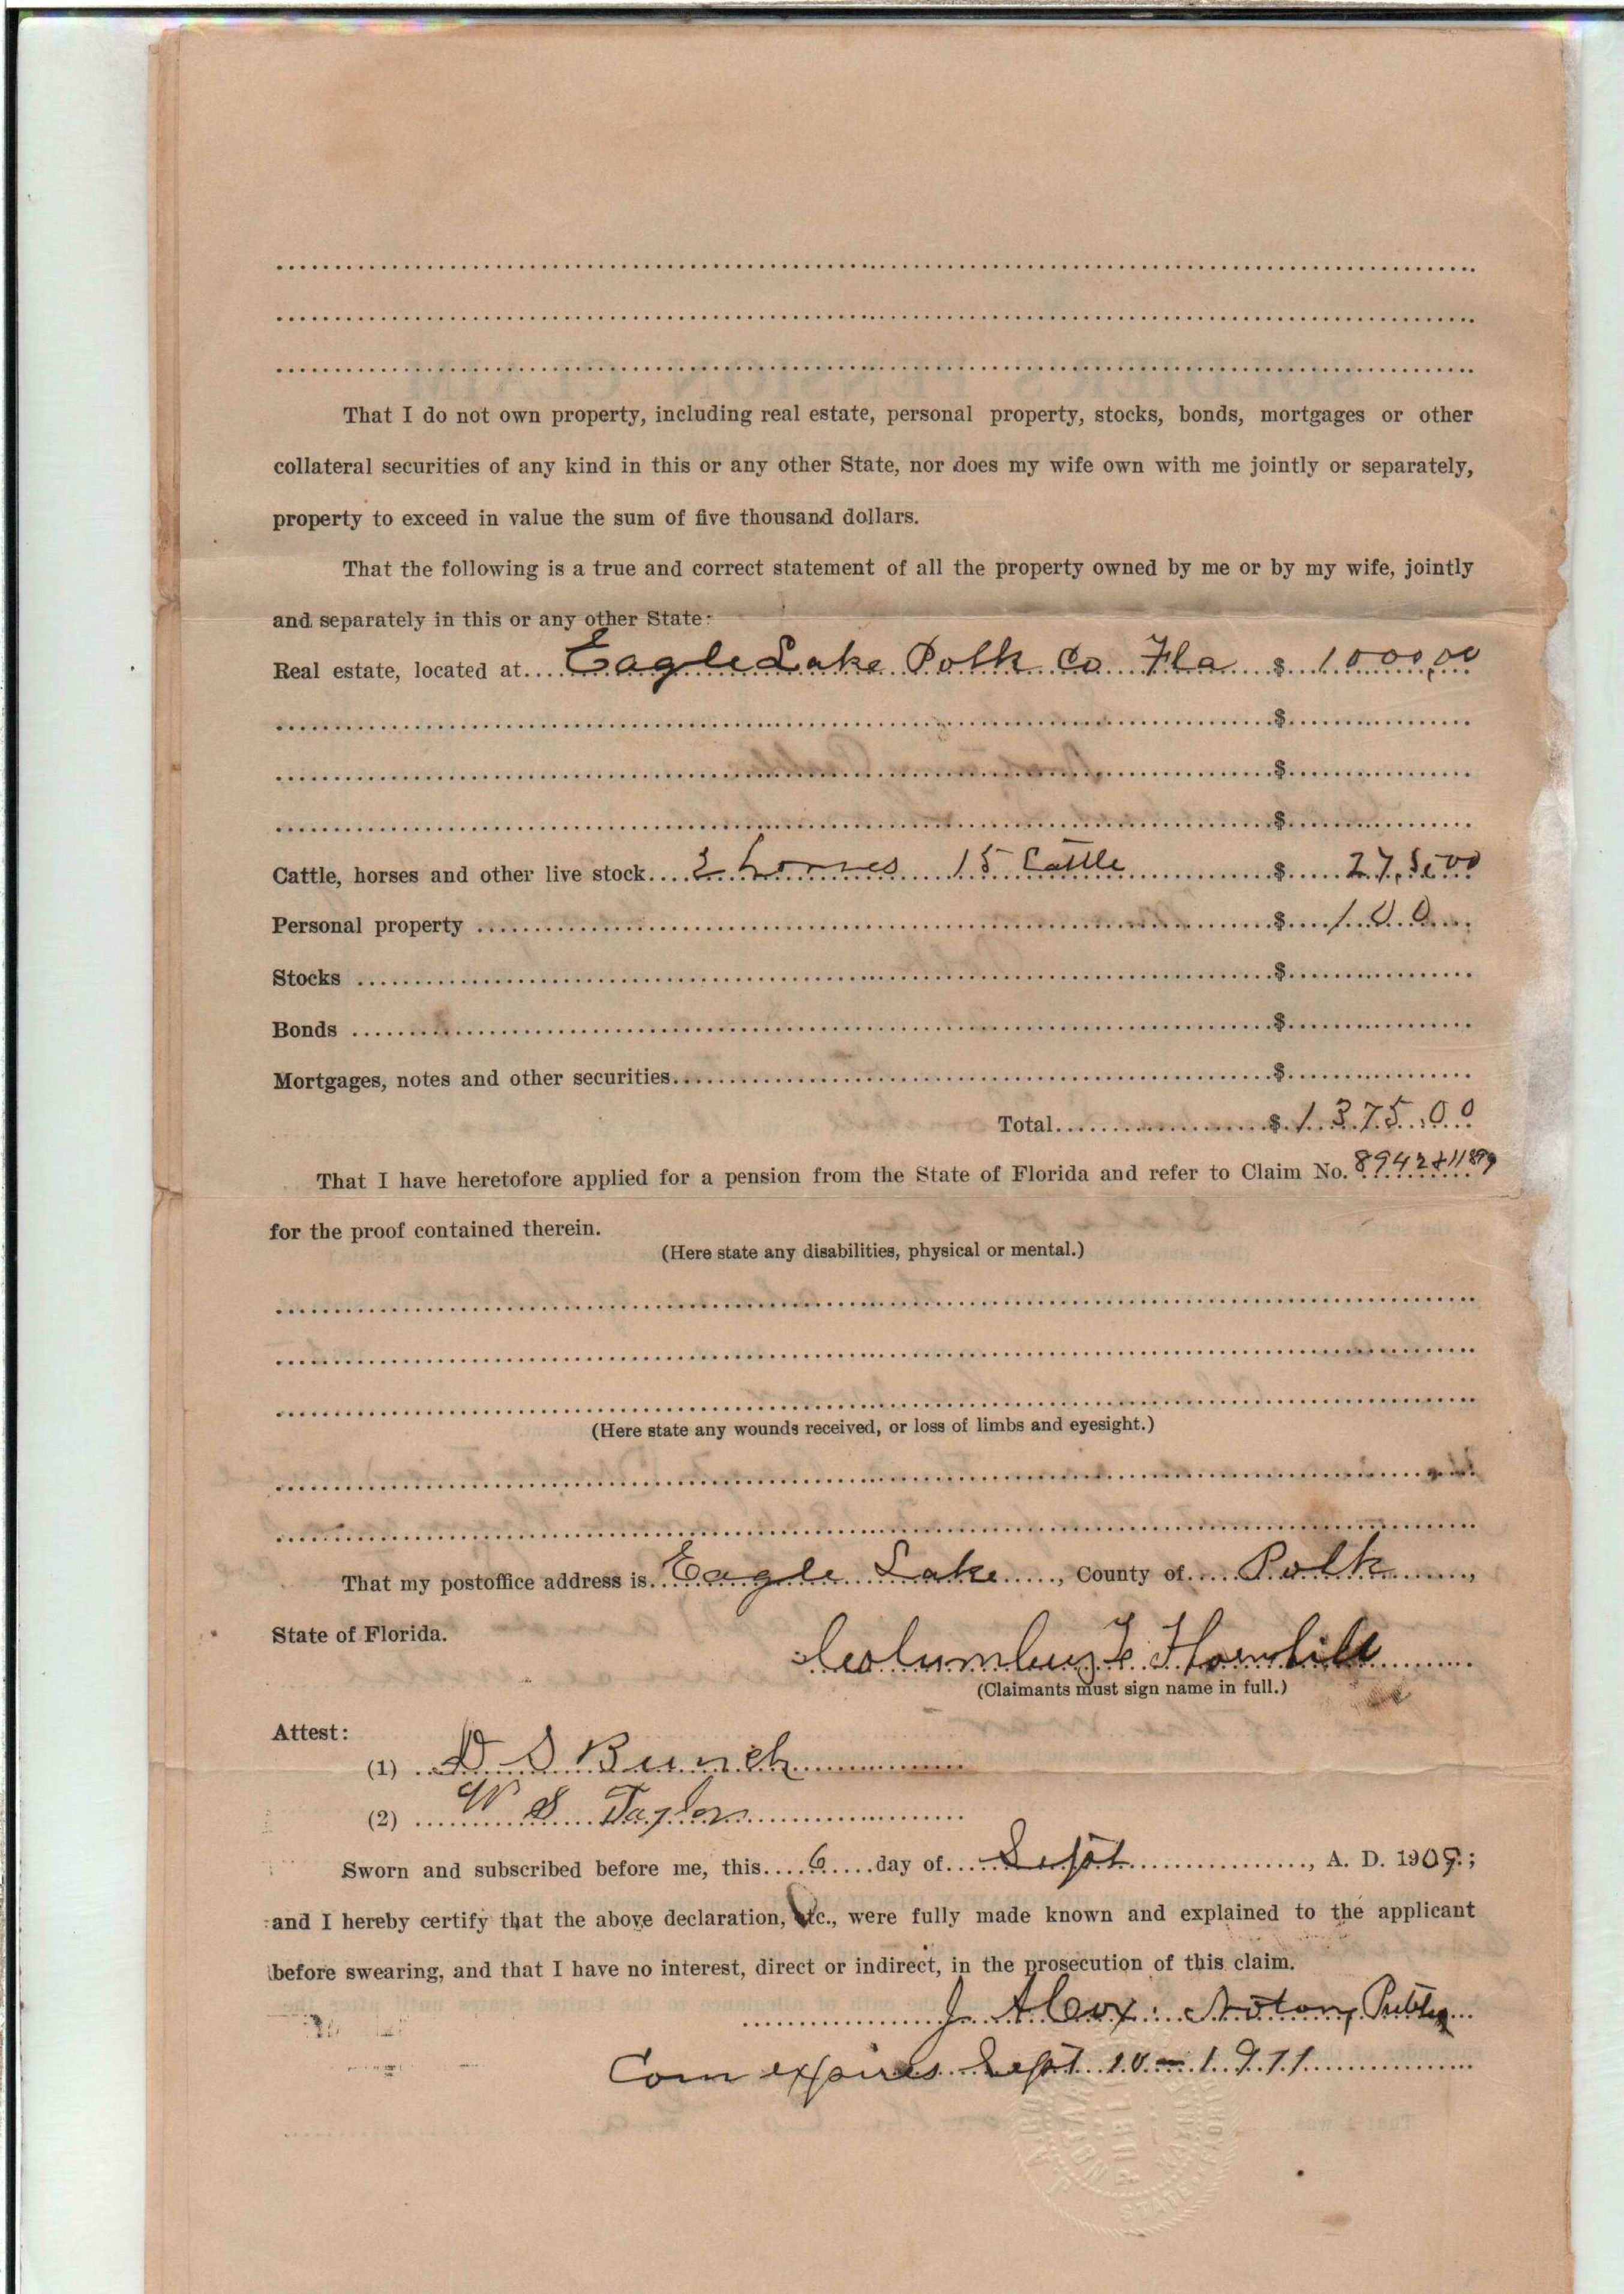 That I do not own property, including real estate, personal property, stocks, bonds, mortgages or other
collateral securities of any kind in this or any other State, nor does my wife own with me jointly or separately,
property to exceed in value the sum of five thousand dollars.
That the following is a true and correct statement of all the property owned by me or by my wife, jointly
and separately in this or any other State:
Real estate, located at.... Eagle Lake Polk Co Fla $ 1000,00
$
$
$
Cattle, horses and other live stock.... 2 horses 15 Cattle $ 275,00
Personal property $ 100
Stocks $
Bonds $
Mortgages, notes and other securities $
Total $ 1375.00
That I have heretofore applied for a pension from the State of Florida and refer to Claim No. 8942 & 11899
for the proof contained therein.
(Here state any disabilities, physical or mental.)
(Here state any wounds received, or loss of limbs and eyesight.)
That my postoffice address is Eagle Lake, County of Polk,
State of Florida.
Columbus F. Thornhill
(Claimants must sign name in full.)
Attest:
(1) D S Bunch
(2) W S Taylor
Sworn and subscribed before me, this 6 day of Sept, A. D. 1909.;
and I hereby certify that the above declaration, etc., were fully made known and explained to the applicant
before swearing, and that I have no interest, direct or indirect, in the prosecution of this claim.
J. A Cox. Notary Public
Com expires Sept 10 - 1911